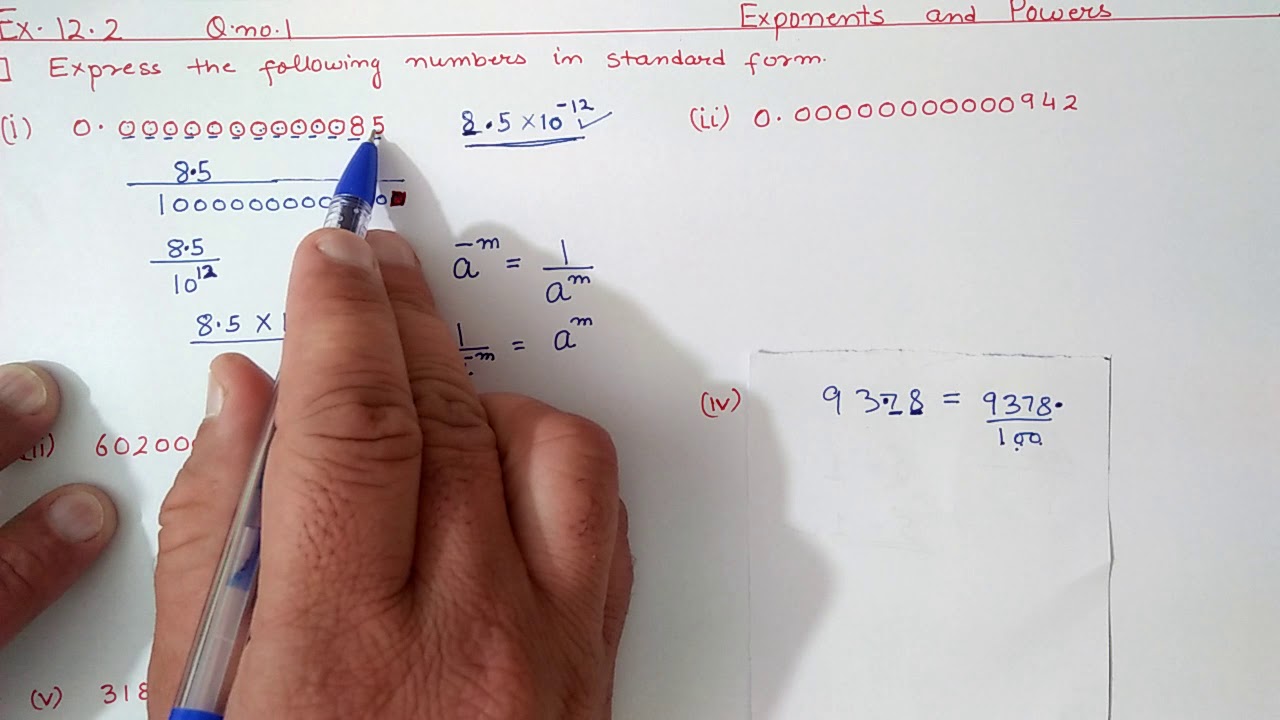 Ex. 12.2 Q.no.1 Exponents and Powers
] Express the following numbers in standard form.
(i) 0.0000000000085 8.5 × 10⁻¹² ✓ (ii) 0.00000000000942
8.5
1000000000 0
8.5
10¹²
8.5 ×
a⁻ᵐ = 1/aᵐ
1 = aᵐ
(iv) 93.78 = 9378./100
60200
(v) 318